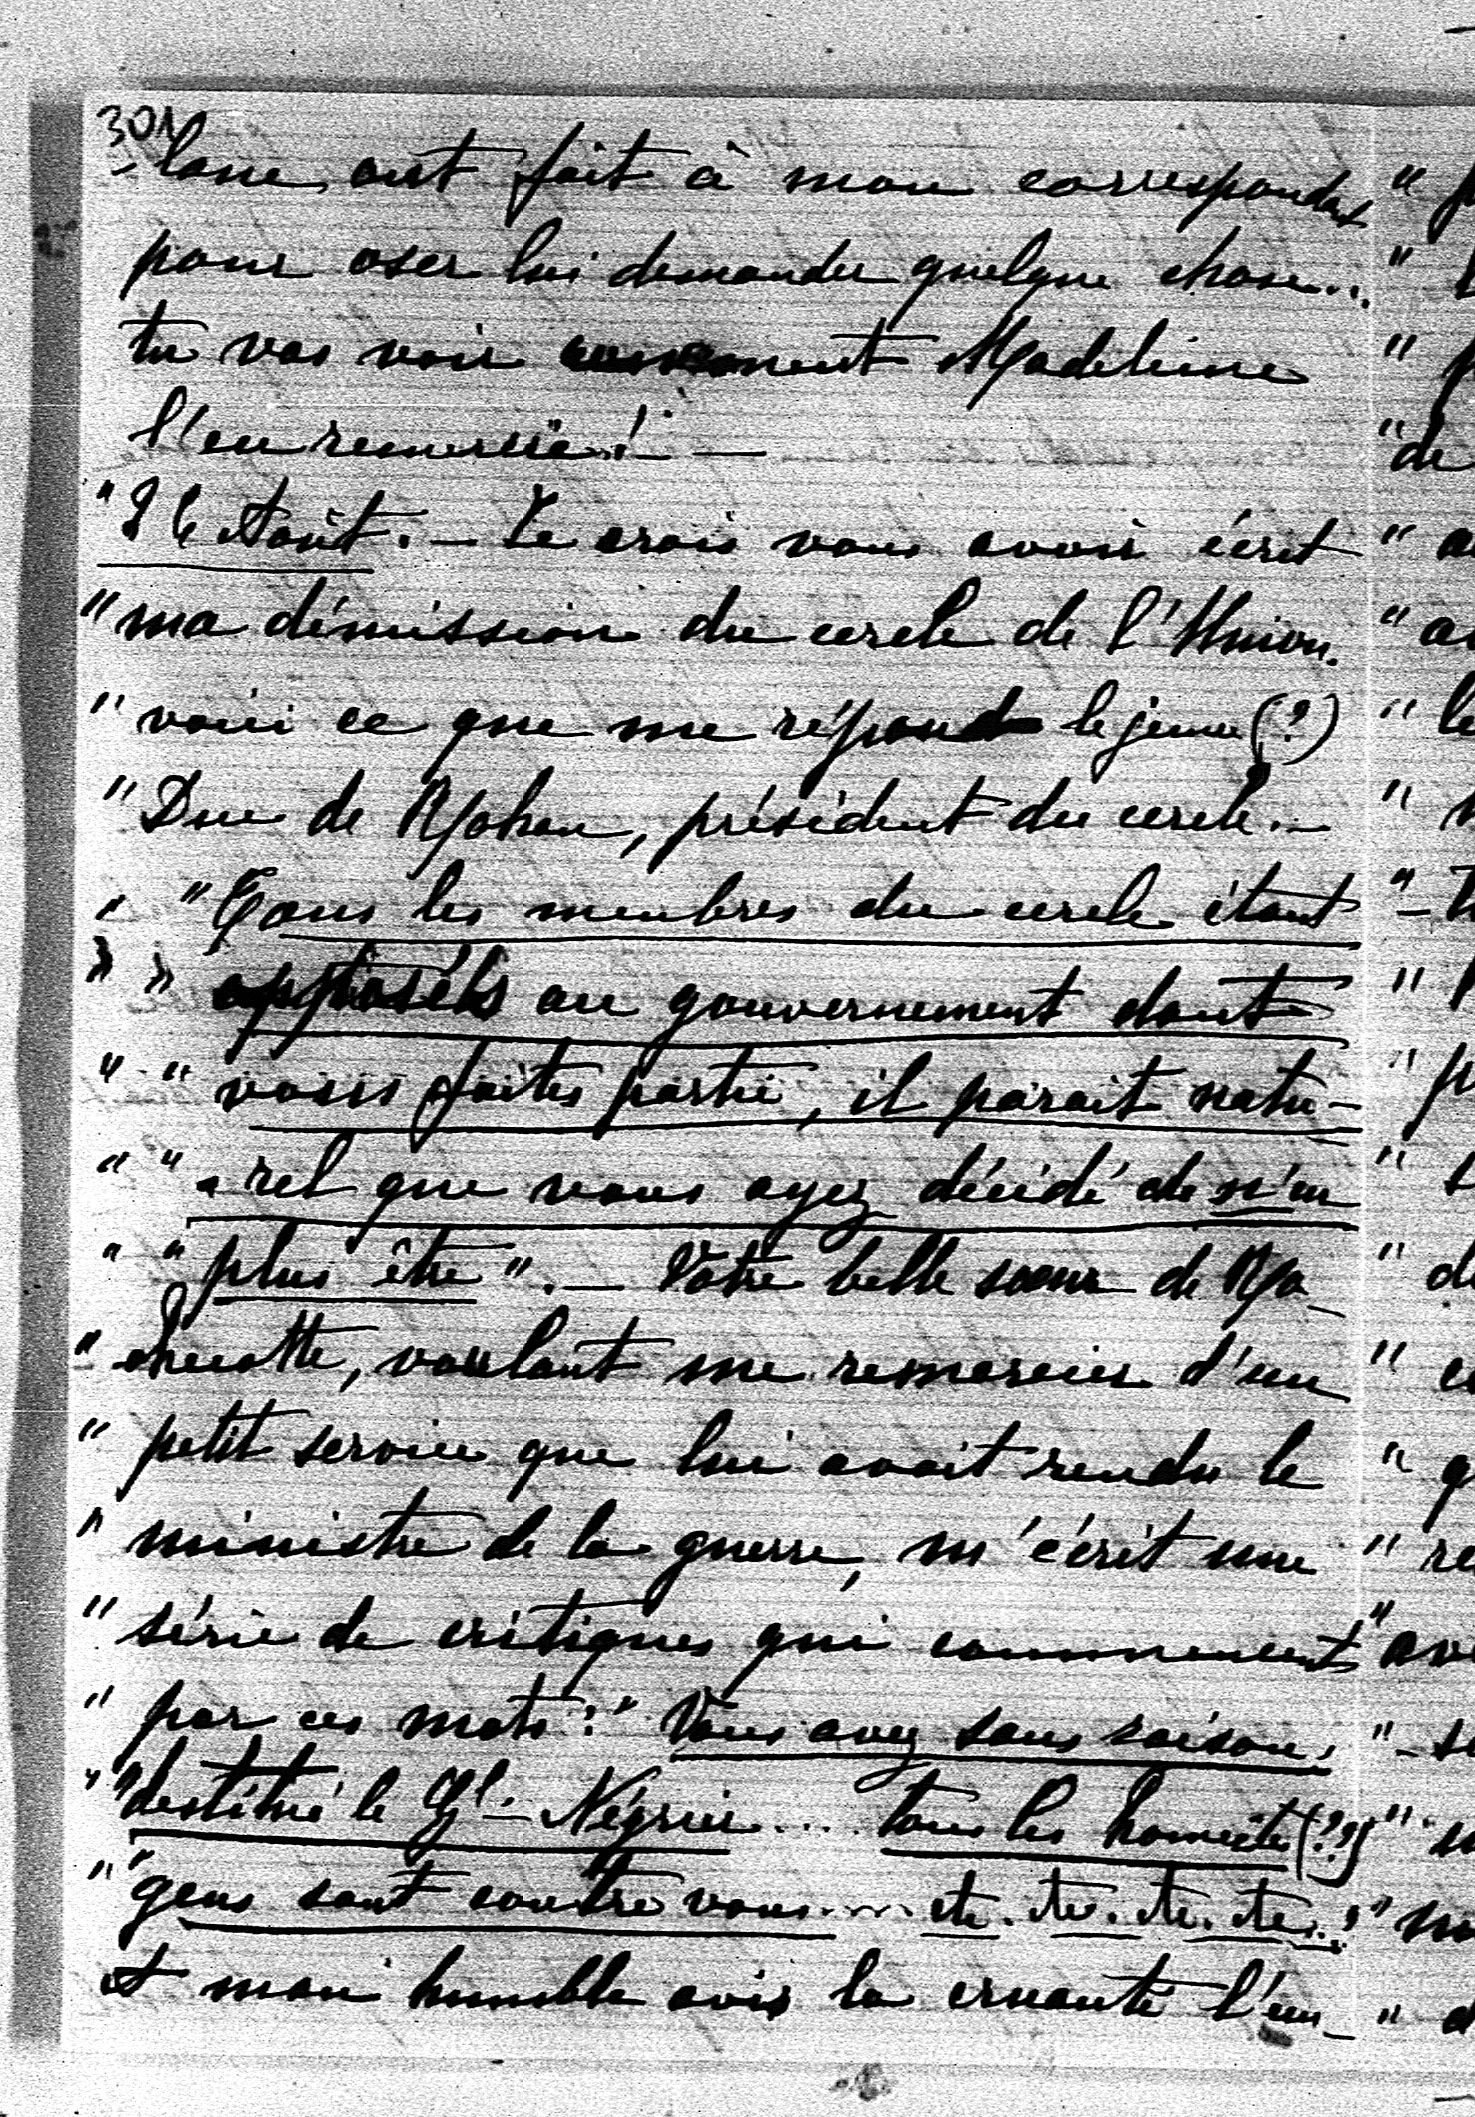 301
-lane, ont fait à mon correspondant
pour oser lui demander quelque chose...
tu vas voir comment Madeleine
l'en remercie! —
"Il Août. — Je crois vous avoir écrit
"ma démission du cercle de l'Union.
"voici ce que me répond le jeune (?)
"Duc de Rohan, président du cercle. —
" "Tous les membres du cercle étant
" " opposés au gouvernement dont
" " vous faites partie, il parait natu-
" " -rel que vous ayez décidé de n'en
" " plus être". — Votre belle sœur de Ro-
"-checotte, voulant me remercier d'un
" petit service que lui avait rendu le
" ministre de la guerre, m'écrit une
" série de critiques qui commencent
" par ces mots: " Vous avez sans raison,
" "destitué le Gl. Négrier.... tous les honnêtes (??)
" "gens sont contre vous.... etc. etc. etc. etc..."
A mon humble avis la cruauté l'em-